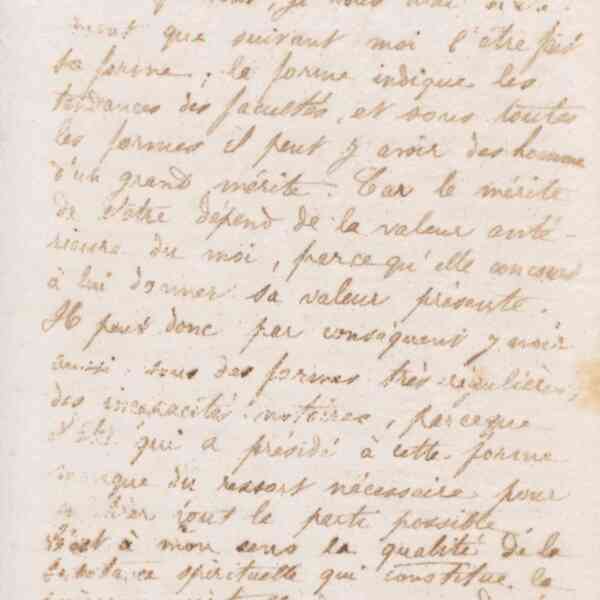 que suivant moi l'être fait
sa forme ; la forme indique les
tendances des facultés, et sous toutes
les formes il peut y avoir des hommes
d'un grand mérite. Car le mérite
de l'être dépend de la valeur anté-
rieure du moi, parcequ'elle concourt
à lui donner sa valeur présente.
Il peut donc par conséquent y avoir
aussi sous des formes très régulières,
des incapacités notoires, parceque
l'être qui a présidé à cette forme
manque du ressort nécessaire pour
tout le parti possible
C'est à mon sens la qualité de la
substance spirituelle qui constitue la